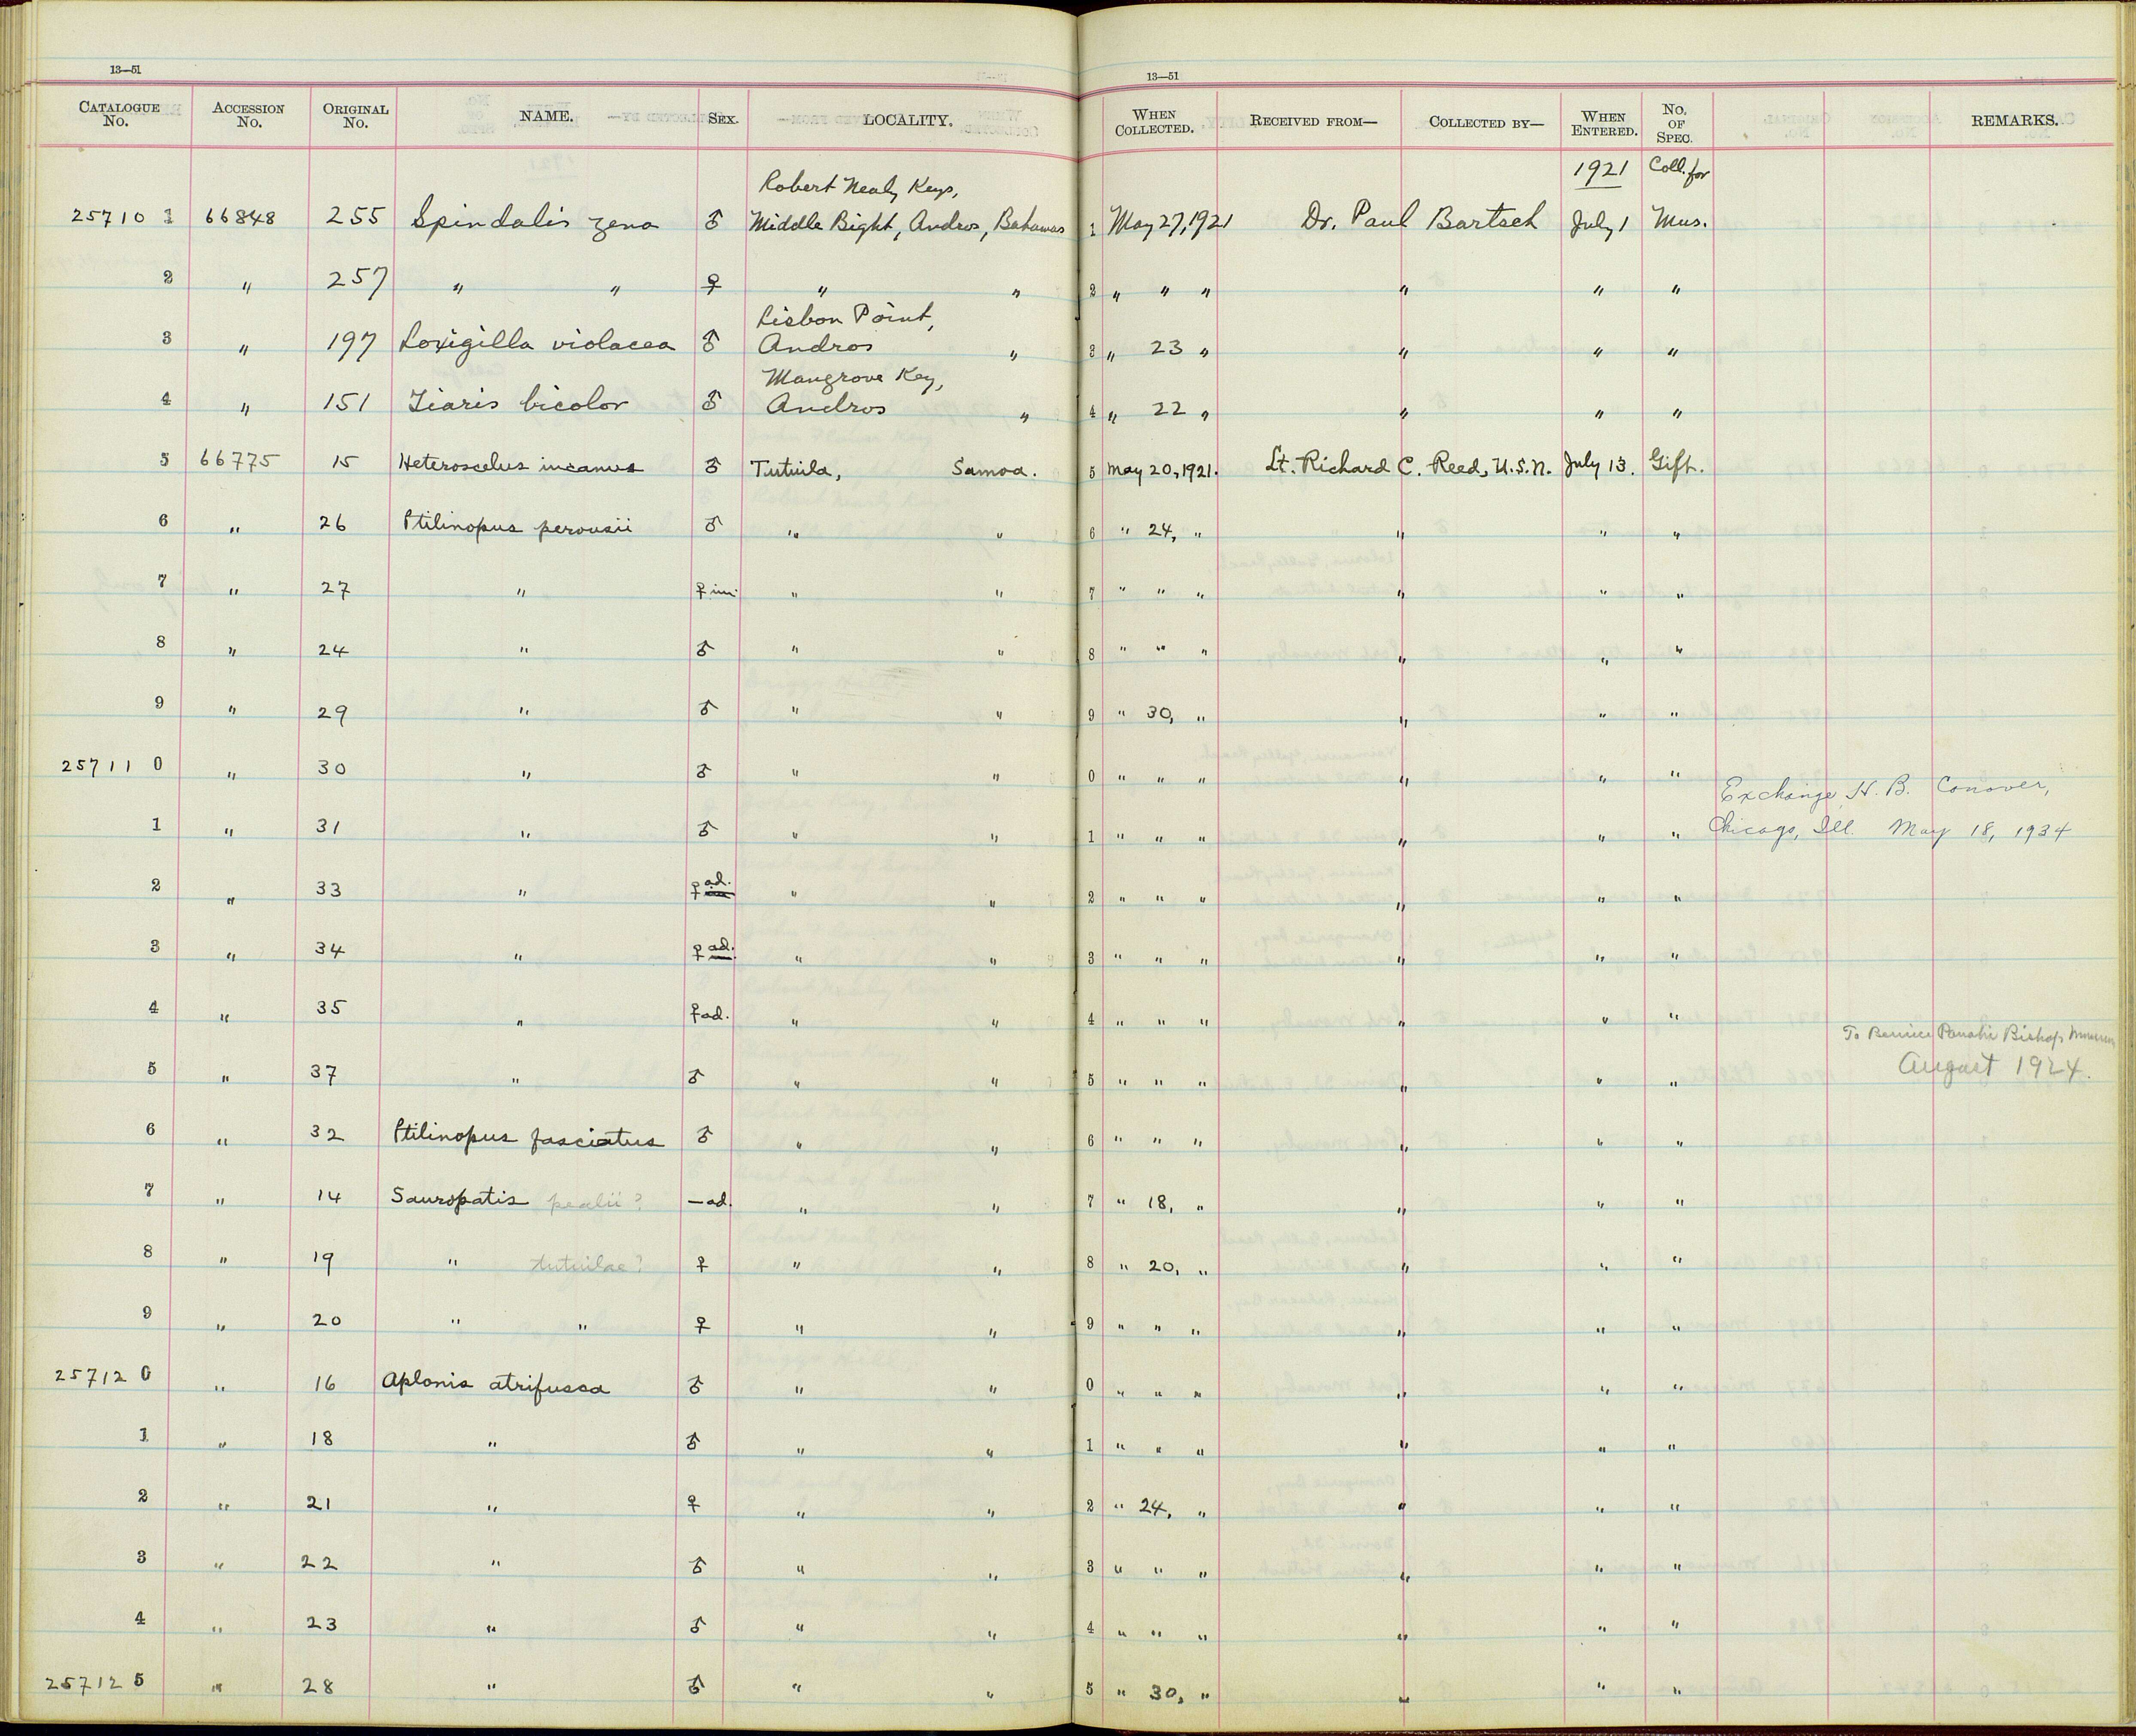 13—51 13—51
CATALOGUE No. ACCESSION No. ORIGINAL No. NAME. SEX. LOCALITY. WHEN COLLECTED. RECEIVED FROM— COLLECTED BY— WHEN ENTERED. No. OF SPEC. REMARKS.
Robert Nealy Keys, 1921 Coll. for
25710 1 66848 255 Spindalis zena ♂ Middle Bight, Andros, Bahamas 1 May 27, 1921 Dr. Paul Bartsch July 1 Mus.
2 " 257 " " ♀ " " 2 " " " " " "
Lisbon Point,
3 " 197 Loxigilla violacea ♂ Andros " 3 " 23 " " " "
Mangrove Key,
4 " 151 Tiaris bicolor ♂ Andros " 4 " 22 " " " "
5 66775 15 Heteroscelus incanus ♂ Tutuila, Samoa. 5 May 20, 1921. Lt. Richard C. Reed, U.S.N. July 13. Gift.
6 " 26 Ptilinopus perousii ♂ " " 6 " 24, " " " "
7 " 27 " " ♀ im. " " 7 " " " " " "
8 " 24 " ♂ " " 8 " " " " " "
9 " 29 " ♂ " " 9 " 30, " " " "
25711 0 " 30 " ♂ " " 0 " " " " " "
Exchange H. B. Conover,
1 " 31 " ♂ " " 1 " " " " " " Chicago, Ill. May 18, 1934
2 " 33 " ♀ ad. " " 2 " " " " " "
3 " 34 " ♀ ad. " " 3 " " " " " "
4 " 35 " ♀ ad. " " 4 " " " " " "
To Bernice Pauahi Bishop Museum
5 " 37 " ♂ " " 5 " " " " " " August 1924.
6 " 32 Ptilinopus fasciatus ♂ " " 6 " " " " " "
7 " 14 Sauropatis pealii? — ad. " " 7 " 18, " " " "
8 " 19 " tutuilae? ♀ " " 8 " 20, " " " "
9 " 20 " " ♀ " " 9 " " " " " "
25712 0 " 16 Aplonis atrifusca ♂ " " 0 " " " " " "
1 " 18 " ♂ " " 1 " " " " " "
2 " 21 " ♀ " " 2 " 24, " " " "
3 " 22 " ♂ " " 3 " " " " " "
4 " 23 " ♂ " " 4 " " " " " "
25712 5 " 28 " ♂ " " 5 " 30, " " " "